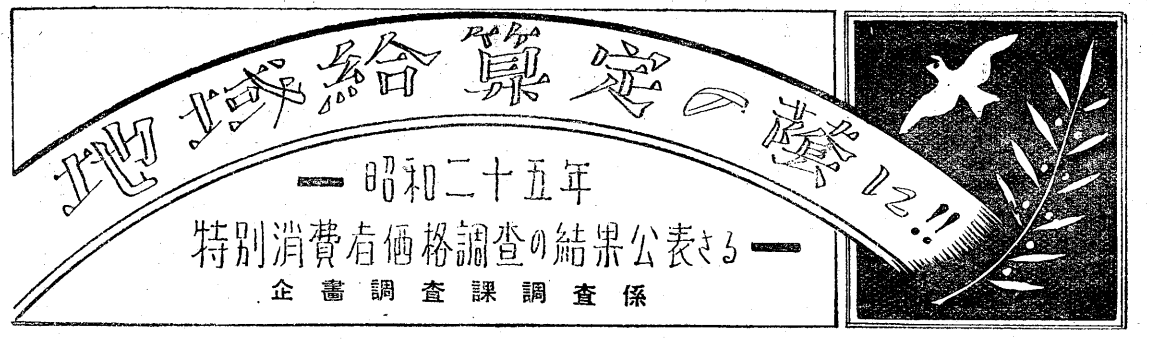 地域給算定の蔭に!!
━昭和二十五年
特別消費者価格調査の結果公表さる━
企畫調査課調査係